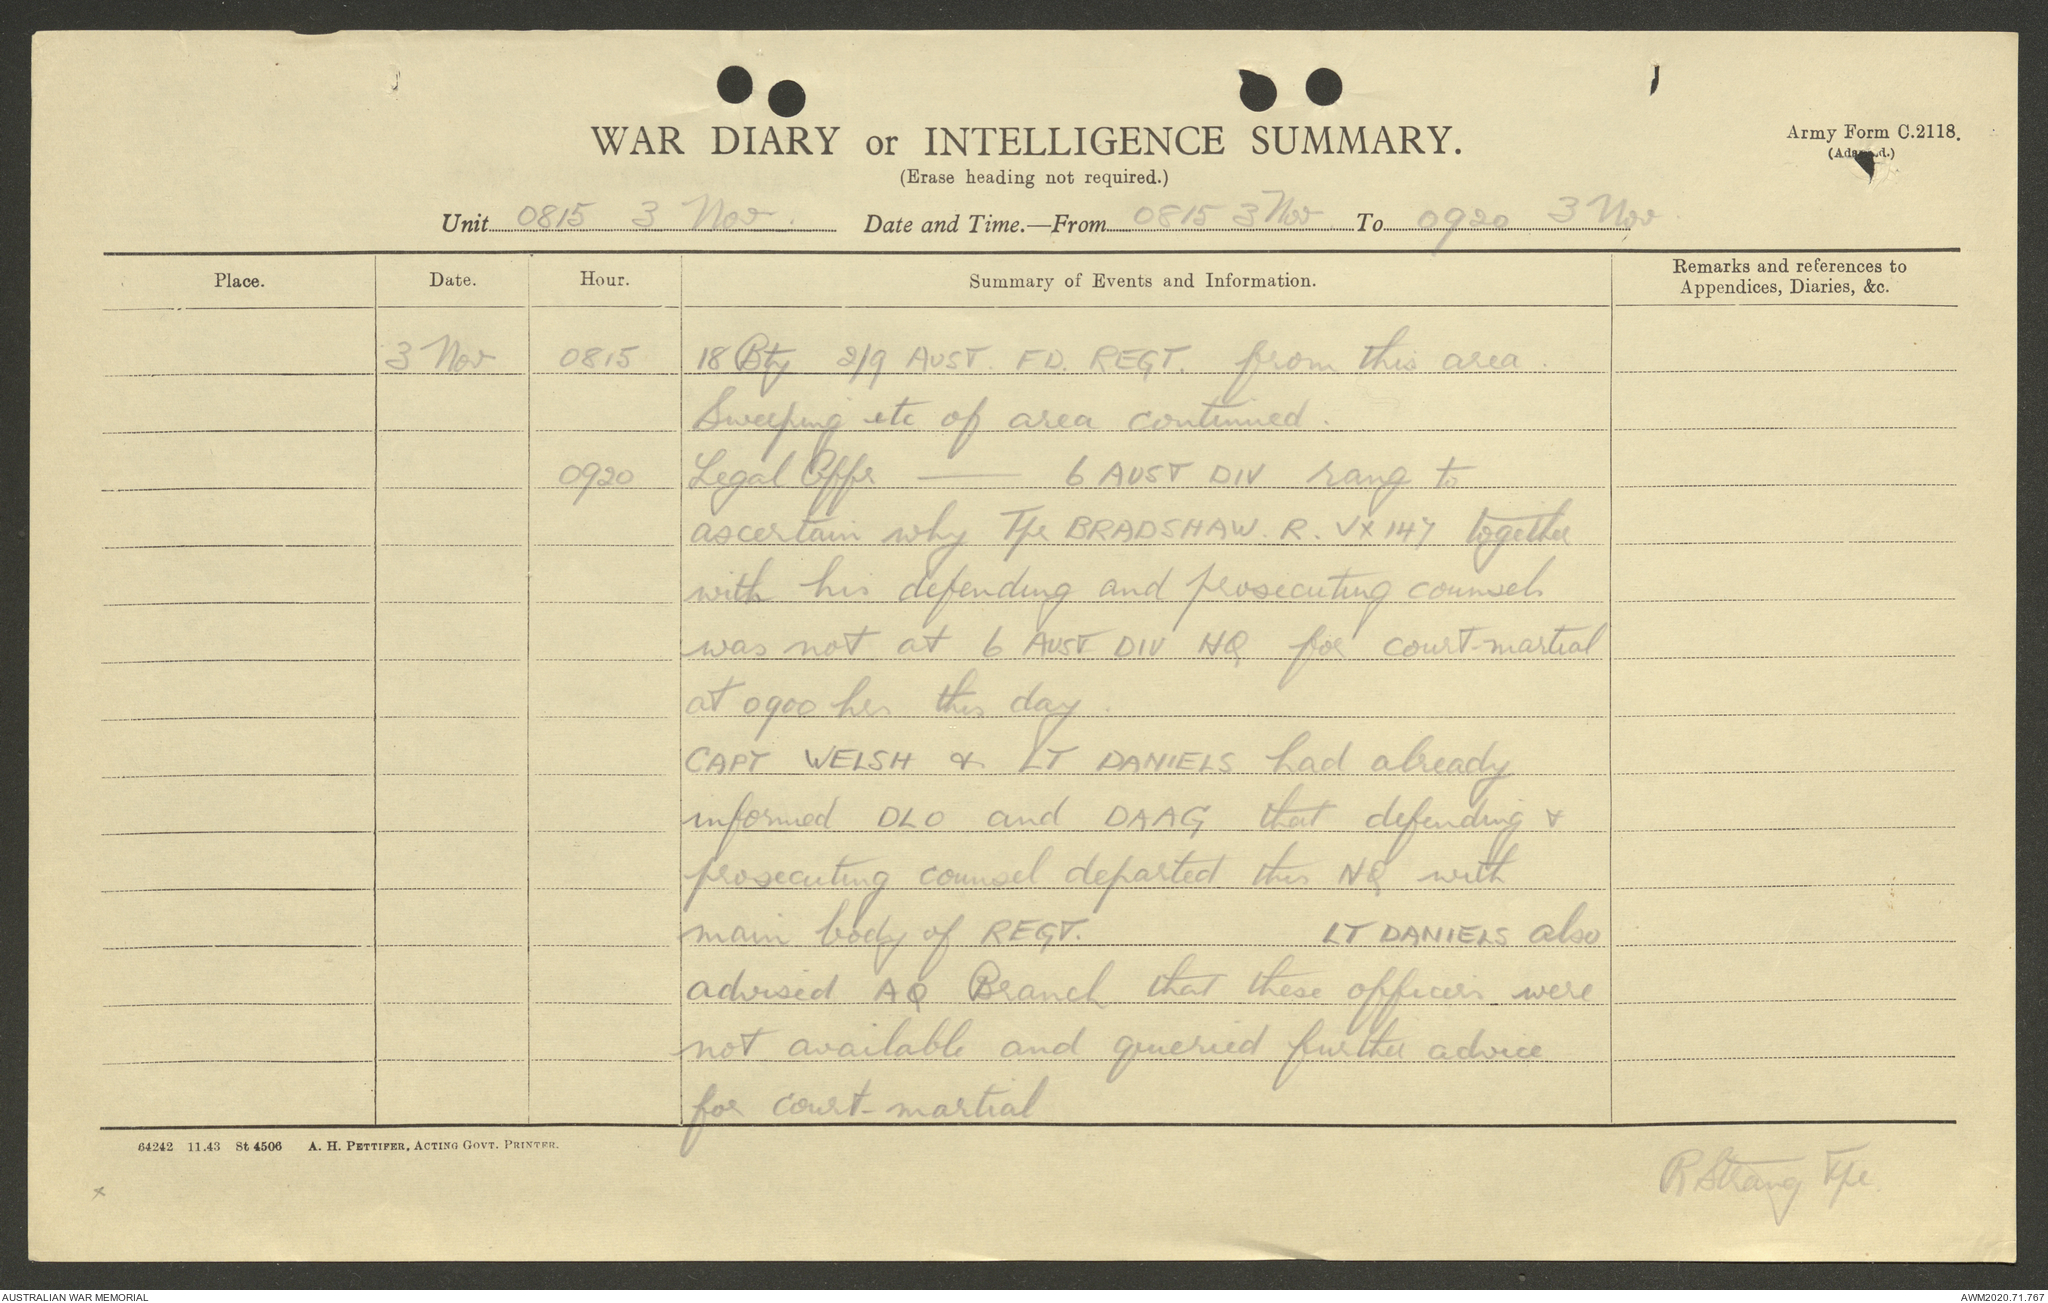 WAR DIARY or INTELLIGENCE SUMMARY.
Army Form C.2118.
(Erase heading not required.)
Unit 0815 3 Nov. Date and Time.—From 0815 3 Nov To 0920 3 Nov
Place. Date. Hour. Summary of Events and Information. Remarks and references to
Appendices, Diaries, &c.
3 Nov 0815 18 Bty 2/9 AUST. FD. REGT. from this area.
Sweeping etc of area continued.
0920 Legal Offr — 6 AUST DIV rang to
ascertain why Tpr BRADSHAW. R. VX147 together
with his defending and prosecuting counsels
was not at 6 AUST DIV HQ for court-martial
at 0900 hrs this day.
CAPT WELSH & LT DANIELS had already
informed DLO and DAAG that defending &
prosecuting counsel departed this HQ with
main body of REGT. LT DANIELS also
advised AQ Branch that these officers were
not available and queried further advice
for court-martial
64242 11.43 St 4506 A. H. PETTIFER, ACTING GOVT. PRINTER.
R Strang Tpr.
x
AUSTRALIAN WAR MEMORIAL
AWM2020.71.767